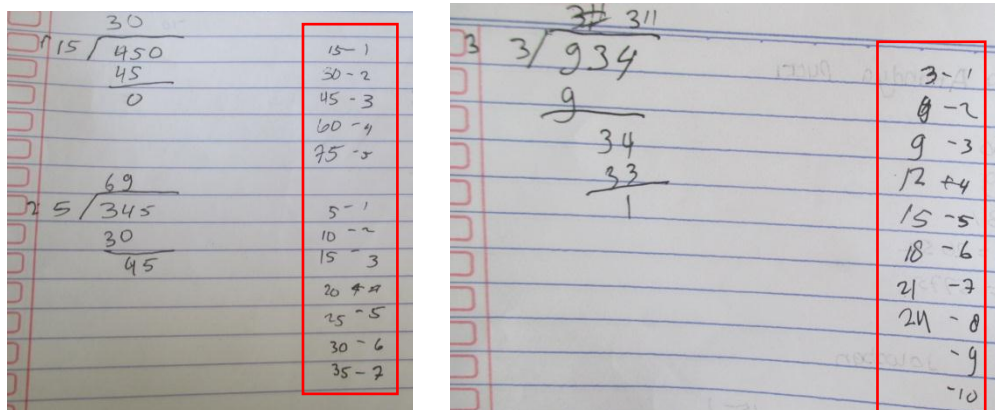 30
1 15 / 450
45
0
15 - 1
30 - 2
45 - 3
60 - 4
75 - 5
69
2 5 / 345
30
45
5 - 1
10 - 2
15 - 3
20 - 4
25 - 5
30 - 6
35 - 7
311
3 3 / 934
9
34
33
1
3 - 1
6 - 2
9 - 3
12 - 4
15 - 5
18 - 6
21 - 7
24 - 8
- 9
- 10